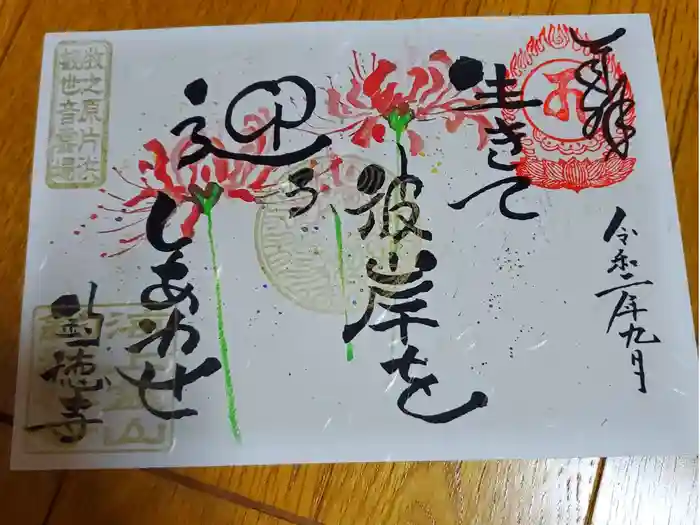 奉拝
令和二年九月
生きて
彼岸を
迎える
しあわせ
徳寺
牧之原片浜
観世音霊場